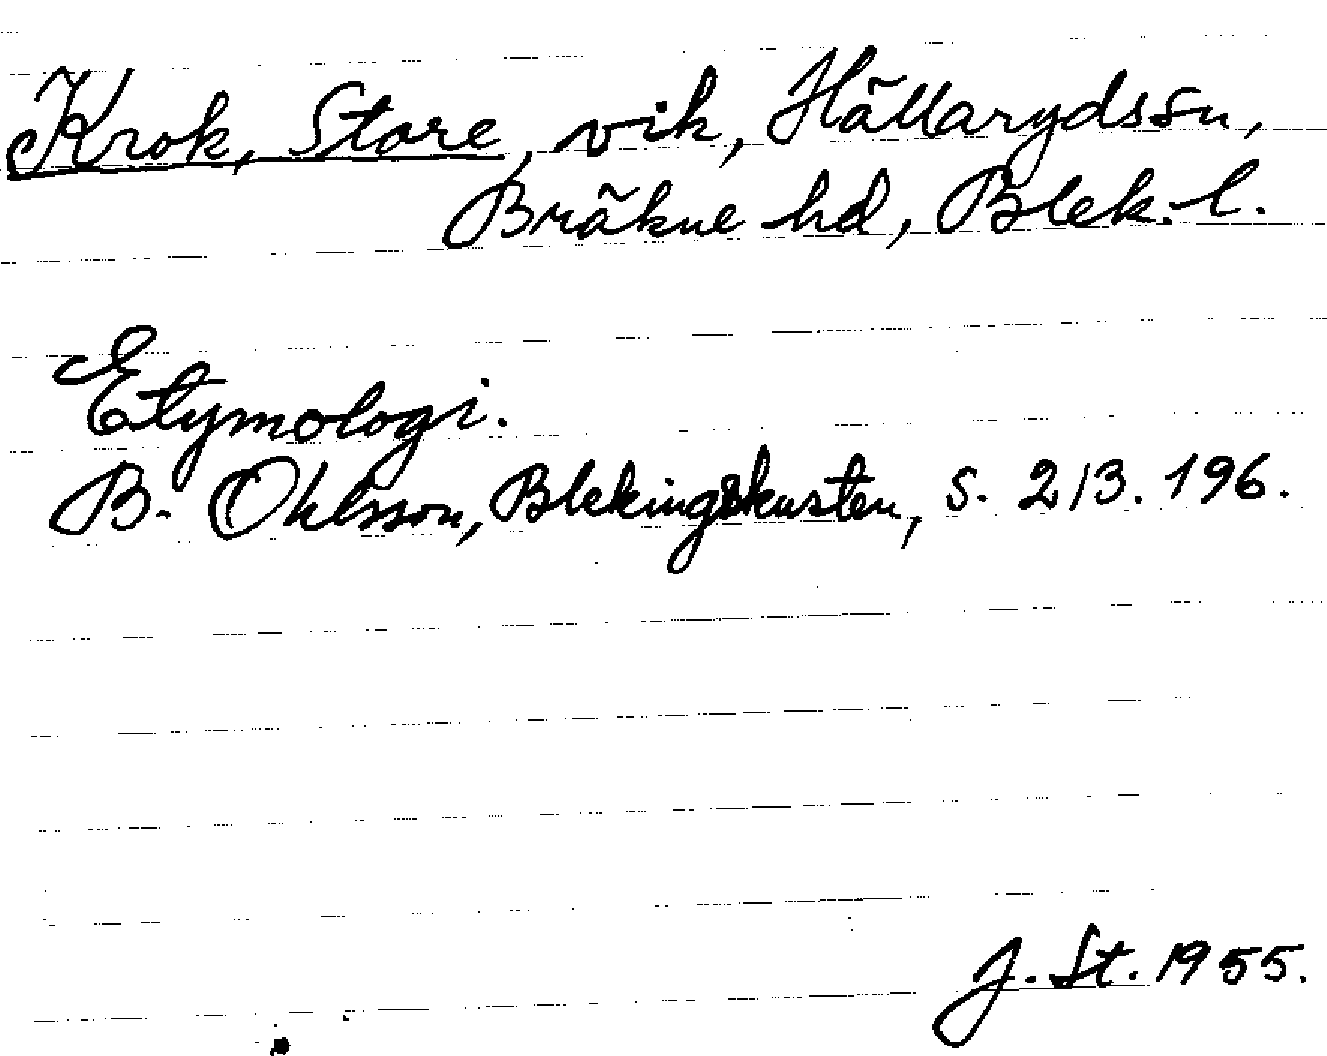 Krok, Store, vik, Hällarydssn,
Bräkne hd, Blek. l.
Etymologi.
B. Ohlsson, Blekingskusten, s. 213. 196.
J. St. 1955.